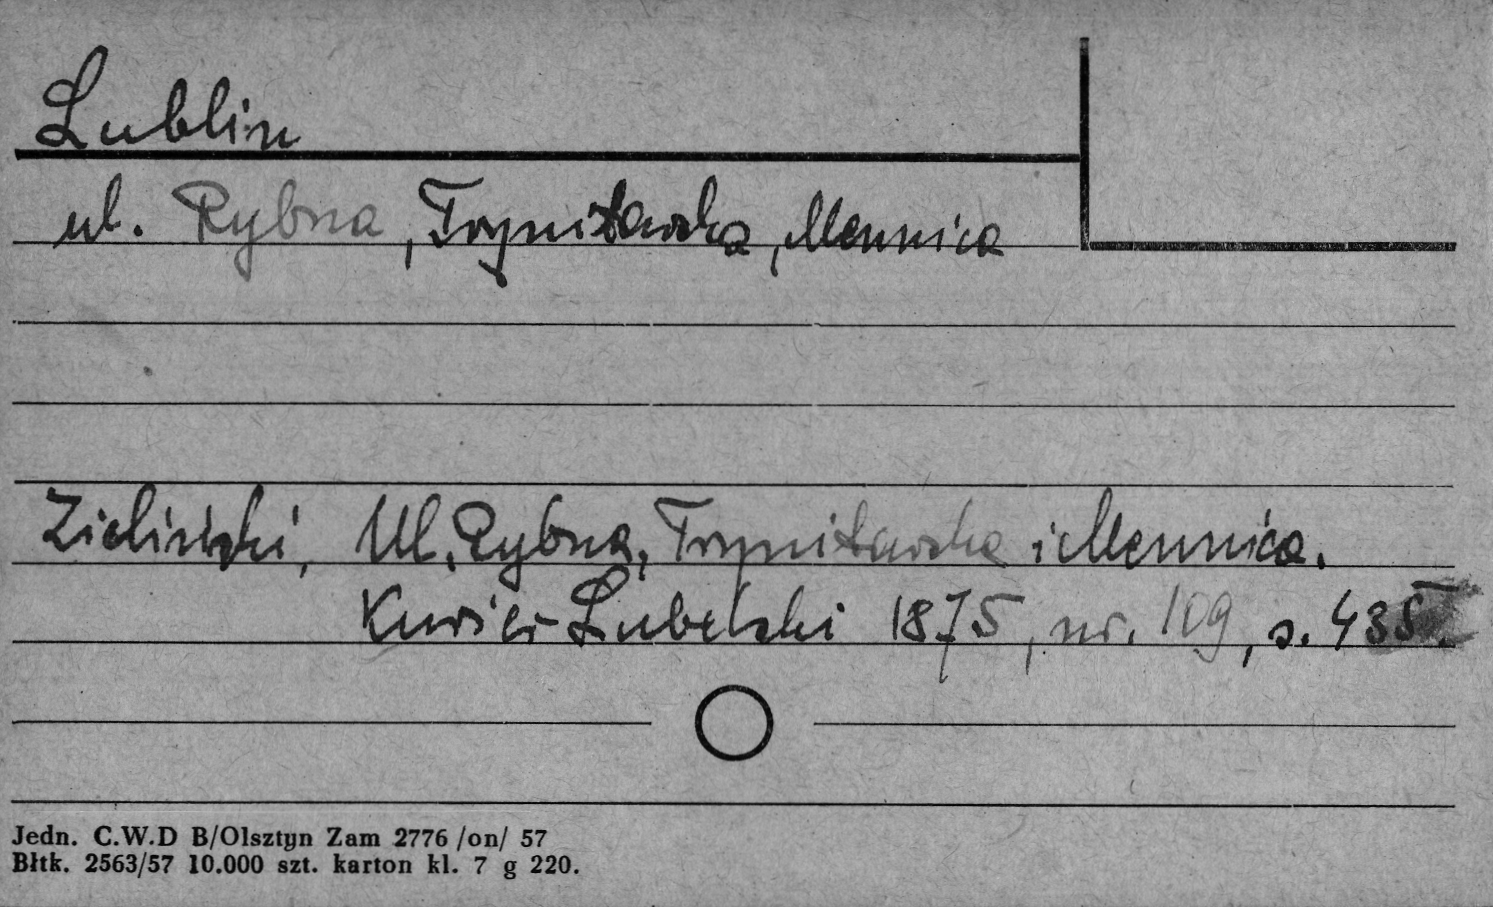 Lublin
ul. Rybna, Trynitarska, Mennica
Zieliński, Ul. Rybna, Trynitarska i Mennica.
Kurier Lubelski 1875, nr. 109, s. 435.
Jedn. C.W.D B/Olsztyn Zam 2776 /on/ 57
Błtk. 2563/57 10.000 szt. karton kl. 7 g 220.